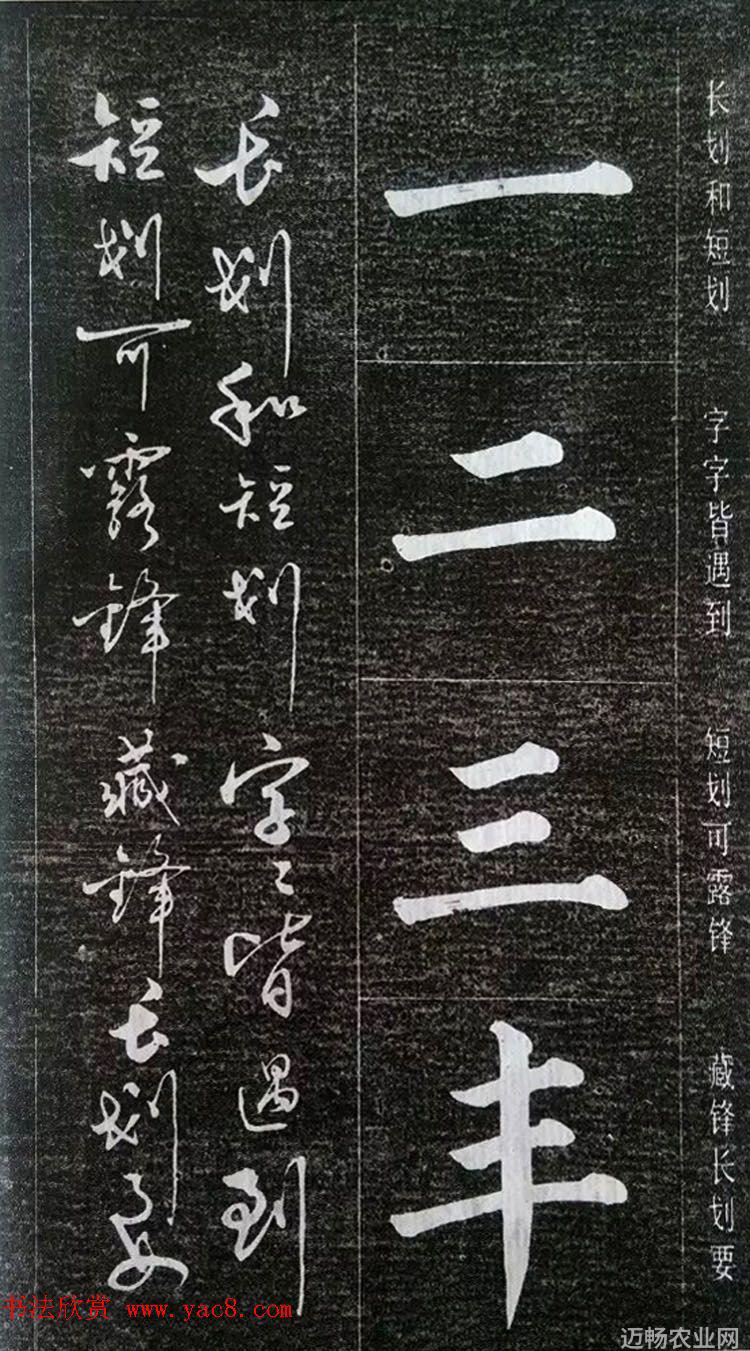 长划和短划 字字皆遇到 短划可露锋 藏锋长划要
一
二
三
丰
长划和短划字〻皆遇到
短划可露锋藏锋长划要
书法欣赏 www.yac8.com
迈畅农业网